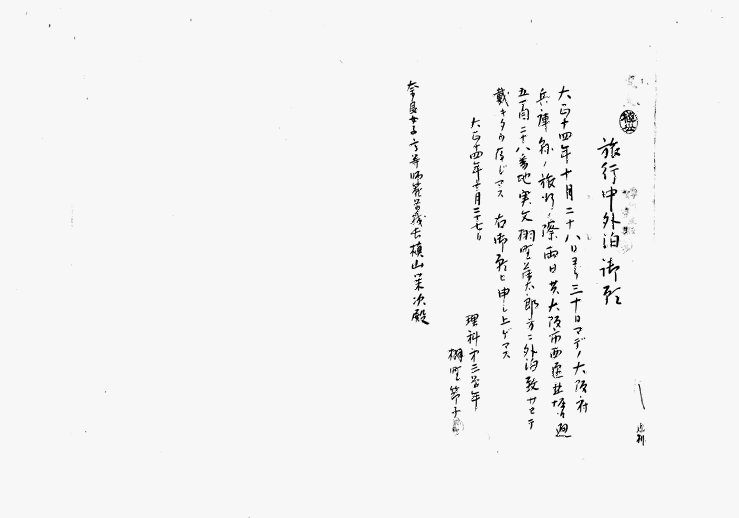 旅行中外泊御願
大正十四年十月二十八日ヨリ三十日マデノ大阪府
兵庫縣ノ旅行ノ際両日共大阪市西區北堀江通
五丁目二十八番地実父棚野藤太郎方ニ外泊致サセテ
戴キタウ存ジマス 右御願ヒ申し上ゲマス
大正十四年十月二十七日
理科第三学年
棚野節子
奈良女子高等師範学校長槇山栄次殿